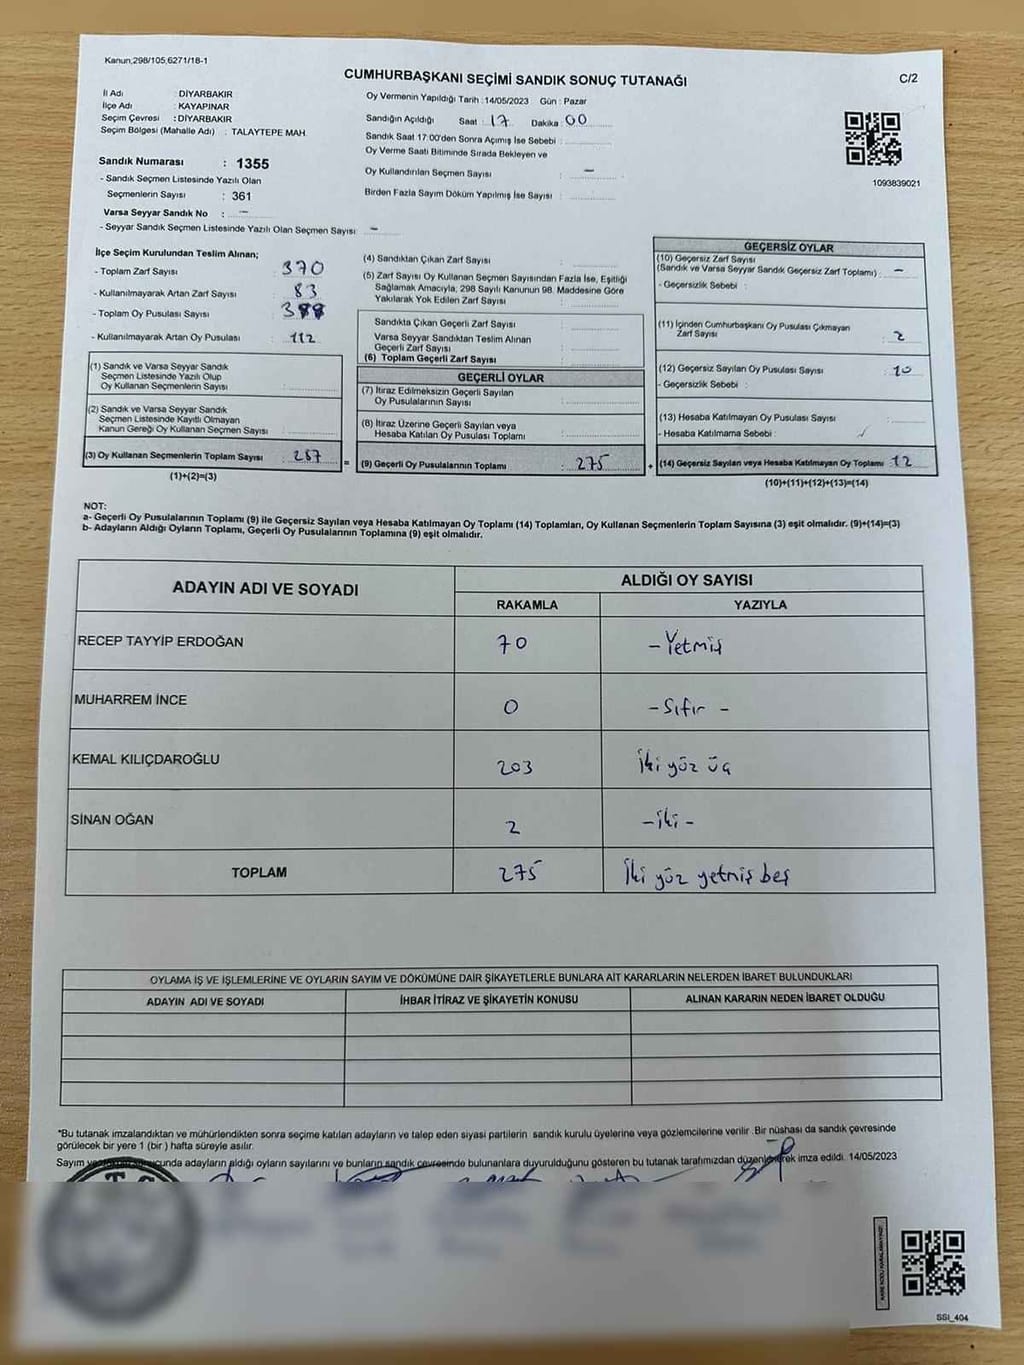 Kanun,298/105,6271/18-1
CUMHURBAŞKANI SEÇİMİ SANDIK SONUÇ TUTANAĞI
C/2
İl Adı : DİYARBAKIR
İlçe Adı : KAYAPINAR
Seçim Çevresi : DİYARBAKIR
Seçim Bölgesi (Mahalle Adı) : TALAYTEPE MAH.
Sandık Numarası : 1355
- Sandık Seçmen Listesinde Yazılı Olan
Seçmenlerin Sayısı : 361
Varsa Seyyar Sandık No : -
- Seyyar Sandık Seçmen Listesinde Yazılı Olan Seçmen Sayısı : -
Oy Vermenin Yapıldığı Tarih :14/05/2023 Gün : Pazar
Sandığın Açıldığı Saat : 17 Dakika : 00
Sandık Saat 17:00'den Sonra Açımış İse Sebebi :
Oy Verme Saati Bitiminde Sırada Bekleyen ve
Oy Kullandırılan Seçmen Sayısı : -
Birden Fazla Sayım Döküm Yapılmış İse Sayısı :
1093839021
İlçe Seçim Kurulundan Teslim Alınan;
- Toplam Zarf Sayısı : 370
- Kullanılmayarak Artan Zarf Sayısı : 83
- Toplam Oy Pusulası Sayısı :
- Kullanılmayarak Artan Oy Pusulası : 112
(1) Sandık ve Varsa Seyyar Sandık
Seçmen Listesinde Yazılı Olup
Oy Kullanan Seçmenlerin Sayısı :
(2) Sandık ve Varsa Seyyar Sandık
Seçmen Listesinde Kayıtlı Olmayan
Kanun Gereği Oy Kullanan Seçmen Sayısı :
(3) Oy Kullanan Seçmenlerin Toplam Sayısı : 287
(1)+(2)=(3)
(4) Sandıktan Çıkan Zarf Sayısı :
(5) Zarf Sayısı Oy Kullanan Seçmen Sayısından Fazla İse, Eşitliği
Sağlamak Amacıyla, 298 Sayılı Kanunun 98. Maddesine Göre
Yakılarak Yok Edilen Zarf Sayısı :
Sandıkta Çıkan Geçerli Zarf Sayısı :
Varsa Seyyar Sandıktan Teslim Alınan
Geçerli Zarf Sayısı :
(6) Toplam Geçerli Zarf Sayısı :
GEÇERLİ OYLAR
(7) İtiraz Edilmeksizin Geçerli Sayılan
Oy Pusulalarının Sayısı :
(8) İtiraz Üzerine Geçerli Sayılan veya
Hesaba Katılan Oy Pusulası Toplamı :
= (9) Geçerli Oy Pusulalarının Toplamı : 275
GEÇERSİZ OYLAR
(10) Geçersiz Zarf Sayısı
(Sandık ve Varsa Seyyar Sandık Geçersiz Zarf Toplamı) : -
- Geçersizlik Sebebi :
(11) İçinden Cumhurbaşkanı Oy Pusulası Çıkmayan
Zarf Sayısı : 2
(12) Geçersiz Sayılan Oy Pusulası Sayısı : 10
- Geçersizlik Sebebi :
(13) Hesaba Katılmayan Oy Pusulası Sayısı :
- Hesaba Katılmama Sebebi :
+ (14) Geçersiz Sayılan veya Hesaba Katılmayan Oy Toplamı : 12
(10)+(11)+(12)+(13)=(14)
NOT:
a- Geçerli Oy Pusulalarının Toplamı (9) ile Geçersiz Sayılan veya Hesaba Katılmayan Oy Toplamı (14) Toplamları, Oy Kullanan Seçmenlerin Toplam Sayısına (3) eşit olmalıdır. (9)+(14)=(3)
b- Adayların Aldığı Oyların Toplamı, Geçerli Oy Pusulalarının Toplamına (9) eşit olmalıdır.
ADAYIN ADI VE SOYADI
ALDIĞI OY SAYISI
RAKAMLA YAZIYLA
RECEP TAYYİP ERDOĞAN 70 - Yetmiş
MUHARREM İNCE 0 - Sıfır -
KEMAL KILIÇDAROĞLU 203 İki yüz üç
SİNAN OĞAN 2 - İki -
TOPLAM 275 İki yüz yetmiş beş
OYLAMA İŞ VE İŞLEMLERİNE VE OYLARIN SAYIM VE DÖKÜMÜNE DAİR ŞİKAYETLERLE BUNLARA AİT KARARLARIN NELERDEN İBARET BULUNDUKLARI
ADAYIN ADI VE SOYADI İHBAR İTİRAZ VE ŞİKAYETİN KONUSU ALINAN KARARIN NEDEN İBARET OLDUĞU
*Bu tutanak imzalandıktan ve mühürlendikten sonra seçime katılan adayların ve talep eden siyasi partilerin sandık kurulu üyelerine veya gözlemcilerine verilir .Bir nüshası da sandık çevresinde
görülecek bir yere 1 (bir ) hafta süreyle asılır.
Sayım ve adayların aldığı oyların sayılarını ve bunların sandık çevresinde bulunanlara duyurulduğunu gösteren bu tutanak tarafımızdan düzenlenerek imza edildi. 14/05/2023
SSI_404